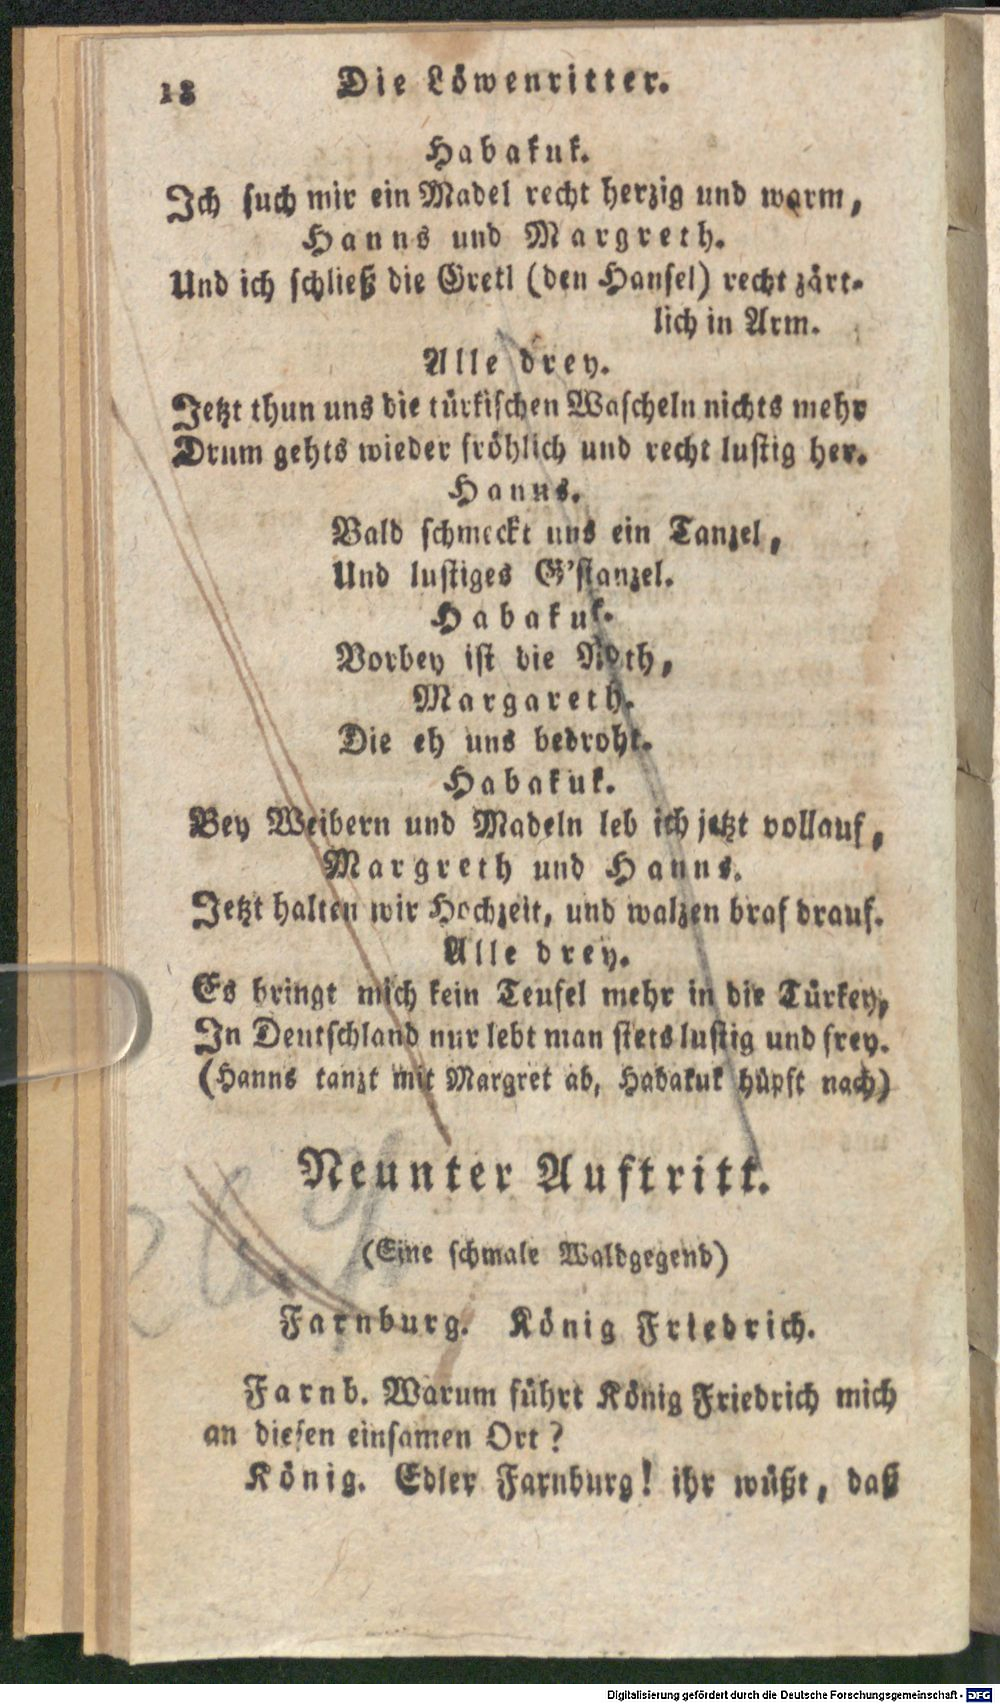 18 Die Löwenritter.
Habakuk.
Ich such mir ein Madel recht herzig und warm,
Hanns und Margreth.
Und ich schließ die Gretl (den Hansel) recht zärt-
lich in Arm.
Alle drey.
Jetzt thun uns die türkischen Wascheln nichts mehr
Drum gehts wieder fröhlich und recht lustig her.
Hanns.
Bald schmeckt uns ein Tanzel,
Und lustiges G'stanzel.
Habakuk.
Vorbey ist die Noth,
Margareth.
Die eh uns bedroht.
Habakuk.
Bey Weibern und Madeln leb ich jetzt vollauf,
Margreth und Hanns.
Jetzt halten wir Hochzeit, und walzen braf drauf.
Alle drey.
Es bringt mich kein Teufel mehr in die Türkey,
In Deutschland nur lebt man stets lustig und frey.
(Hanns tanzt mit Margret ab, Habakuk hüpft nach)
Neunter Auftritt.
(Eine schmale Waldgegend)
Farnburg. König Friedrich.
Farnb. Warum führt König Friedrich mich
an diesen einsamen Ort?
König. Edler Farnburg! ihr wüßt, daß
Digitalisierung gefördert durch die Deutsche Forschungsgemeinschaft - DFG